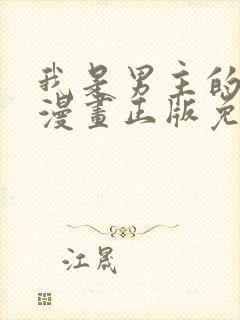 我是男主的
漫畫正版免
江晟